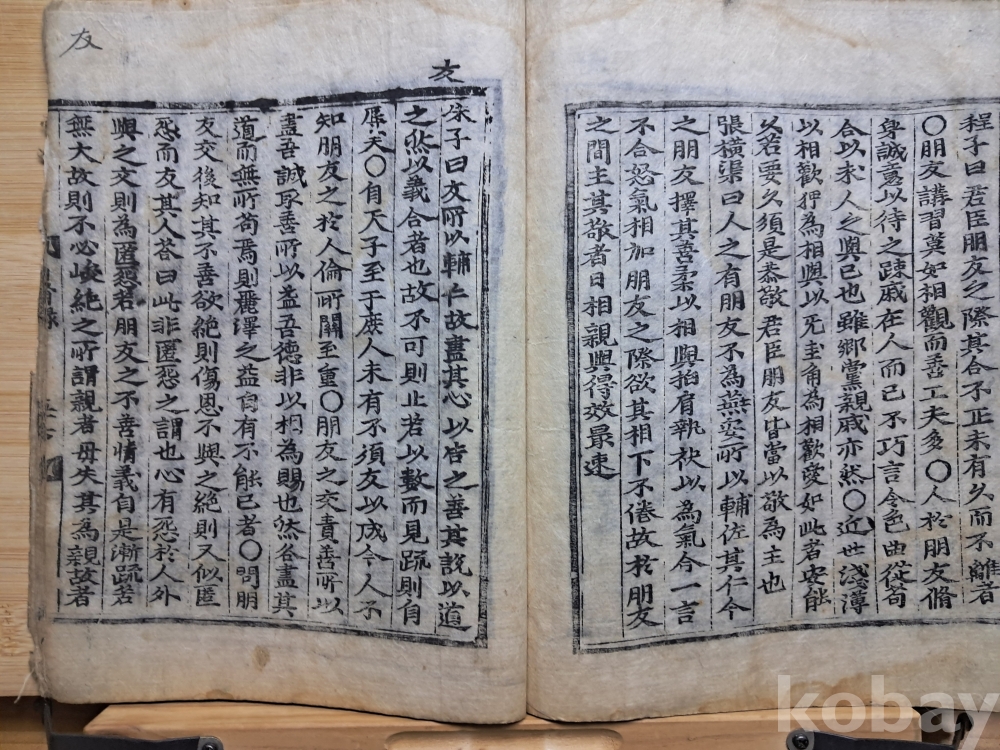 程子曰君臣朋友之際其合不正未有久而不離者
〇朋友講習莫如相觀而善工夫多〇人於朋友脩
身誠意以待之疎戚在人而已不巧言令色曲從苟
合以求人之與已也雖鄉黨親戚亦然〇近世淺薄
以相歡狎為相與以无圭角為相歡愛如此者安能
久若要久須是恭敬君臣朋友皆當以敬為主也
張橫渠曰人之有朋友不為燕安所以輔佐其仁今
之朋友擇其善柔以相與拍肩執袂以為氣合一言
不合怒氣相加朋友之際欲其相下不倦故於朋友
之間主其敬者日相親與得效最速
友
友
朱子曰文所以輔仁故盡其心以告之善其說以道
之然以義合者也故不可則止若以數而見疏則自
辱矣〇自天子至于庶人未有不須友以成今人不
知朋友之於人倫所關至重〇朋友之交責善所以
盡吾誠取善所以益吾德非以相為賜也然各盡其
道而無所苟焉則麗澤之益自有不能已者〇問朋
友交後知其不善欲絕則傷恩不與之絕則又似匿
怨而友其人答曰此非匿怨之謂也心有怨於人外
與之交則為匿怨若朋友之不善情義自是漸疏若
無大故則不必峻絕之所謂親者毋失其為親故者
kobay